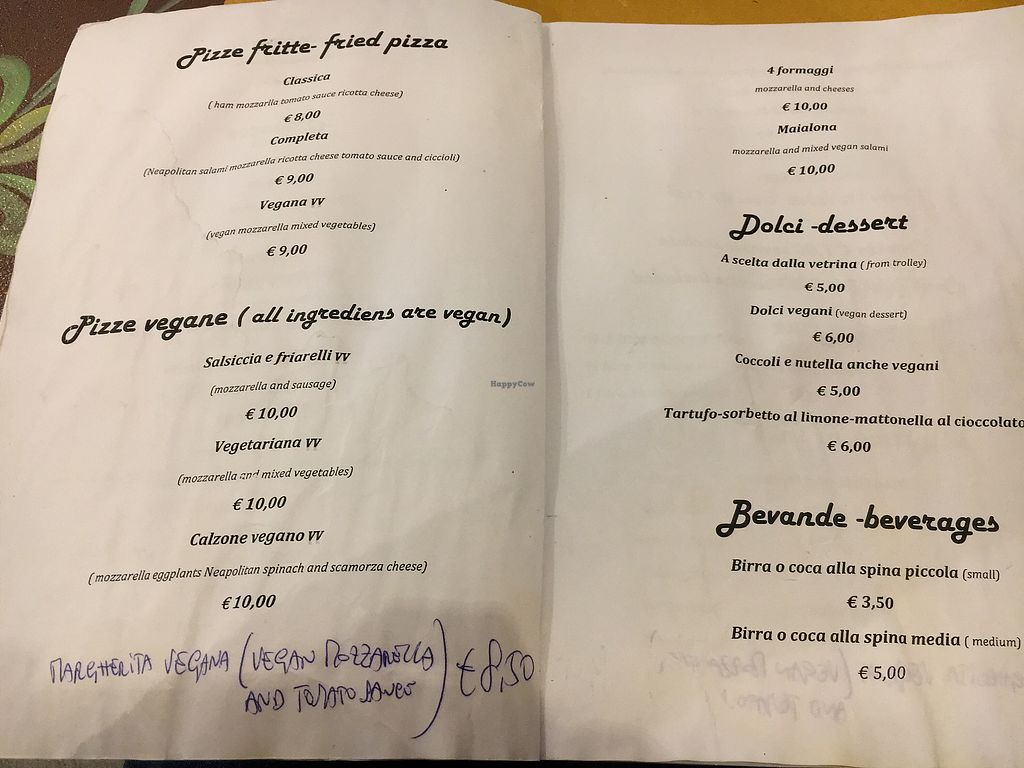 Pizze fritte- fried pizza
Classica
( ham mozzarlla tomato sauce ricotta cheese)
€ 8,00
Completa
(Neapolitan salami mozzarella ricotta cheese tomato sauce and ciccioli)
€ 9,00
Vegana VV
(vegan mozzarella mixed vegetables)
€ 9,00
Pizze vegane ( all ingrediens are vegan)
Salsiccia e friarelli VV
(mozzarella and sausage)
€ 10,00
Vegetariana VV
(mozzarella and mixed vegetables)
€ 10,00
Calzone vegano VV
( mozzarella eggplants Neapolitan spinach and scamorza cheese)
€10,00
MARGHERITA VEGANA (VEGAN MOZZARELLA
AND TOMATO SAUCE) €8,50
4 formaggi
mozzarella and cheeses
€ 10,00
Maialona
mozzarella and mixed vegan salami
€ 10,00
Dolci -dessert
A scelta dalla vetrina ( from trolley)
€ 5,00
Dolci vegani (vegan dessert)
€ 6,00
Coccoli e nutella anche vegani
€ 5,00
Tartufo-sorbetto al limone-mattonella al cioccolato
€ 6,00
Bevande -beverages
Birra o coca alla spina piccola (small)
€ 3,50
Birra o coca alla spina media ( medium)
€ 5,00
HappyCow